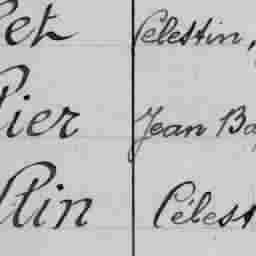 et Celestin,
ier Jean Ba
tin Céles